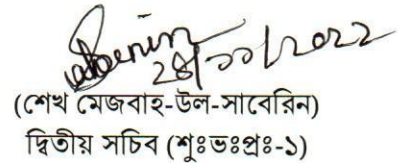 ২৪/১১/২০২২
(শেখ মেজবাহ-উল-সাবেরিন)
দ্বিতীয় সচিব (শুঃভঃপ্রঃ-১)